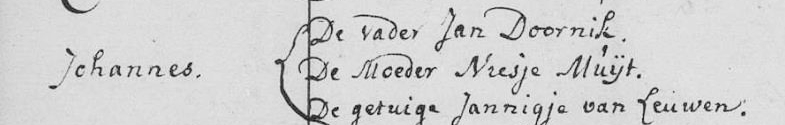 De vader Jan Doornik.
Johannes. De Moeder Niesje Muÿt.
De getuige Jannigje van Leuwen.